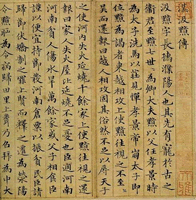 漢汲黯傳
汲黯字長孺濮陽人也其先有寵於古之
衛君至黯七世世為卿大夫黯以父任孝景時
為太子洗馬以莊見憚孝景帝崩太子即
位黯為謁者東越相攻上使黯往視之不至至
吳而還報曰越人相攻固其俗然不足以辱天子
之使河內失火延燒千餘家上使黯往視之還
報曰家人失火屋比延燒不足憂也臣過河南
河南貧人傷水旱萬餘家或父子相食臣
謹以便宜持節發河南倉粟以振貧民臣請
歸節伏矯制之罪上賢而釋之遷為滎陽
令黯恥為令病歸田里上聞乃召拜為中大